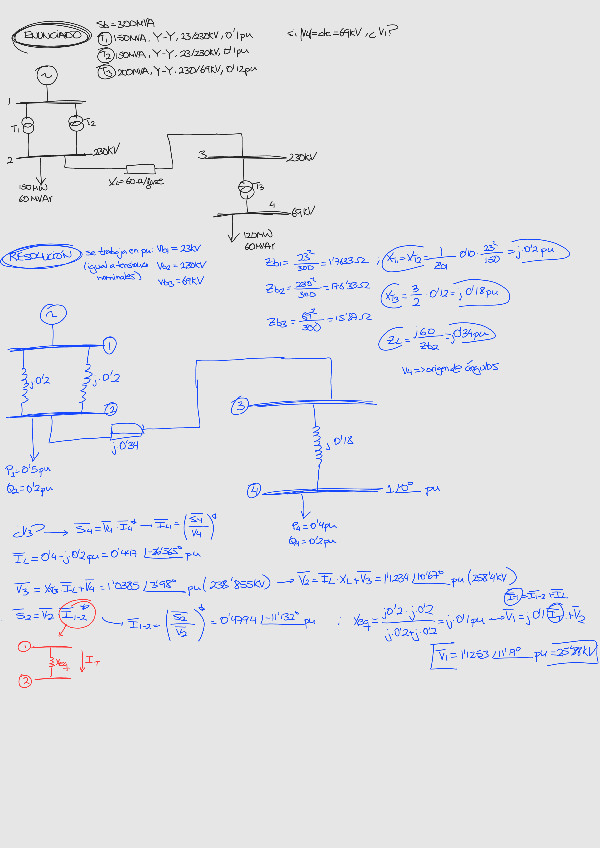 ENUNCIADO
Sb = 300MVA
T1 150MVA, Y-Y, 23/230KV, 0'1pu
T2 150MVA, Y-Y, 23/230KV, 0'1pu
T3 200MVA, Y-Y, 230/69KV, 0'12pu
si |V4|=dc=69KV, ¿V1?
1
T1
T2
2
230KV
150MW
60MVAr
XL=60Ω/fase
3
230KV
T3
4
69KV
120MW
60MVAr
RESOLUCIÓN
se trabaja en pu: Vb1 = 23KV
(igual a tensiones nominales)
Vb2 = 230KV
Vb3 = 69KV
Zb1 = 23²/300 = 1'7633Ω
Zb2 = 230²/300 = 176'33Ω
Zb3 = 69²/300 = 15'87Ω
XT1 = XT2 = 1/Zb1 · 0'10 · 23²/150 = j0'2pu
XT3 = 3/2 · 0'12 = j0'18pu
ZL = j60/Zb2 = j0'34pu
V4 => origen de ángulos
1
j0'2
j0'2
2
P2=0'5pu
Q2=0'2pu
j0'34
3
j0'18
4
1∠0° pu
P4=0'4pu
Q4=0'2pu
¿V3? → S4 = V4 · I4* → I4 = (S4/V4)*
IL = 0'4 - j0'2pu = 0'447 ∠-26'565° pu
V3 = XT3 · IL + V4 = 1'0385 ∠3'98° pu (238'855KV) → V2 = IL · XL + V3 = 1'1234 ∠10'67° pu (258'4KV)
S2 = V2 · I1-2* → I1-2 = (S2/V2)* = 0'4794 ∠-11'132° pu
XEQT = j0'2 · j0'2 / j0'2 + j0'2 = j0'1pu → V1 = j0'1 IT + V2
IT = I1-2 + IL
1
XEQT
IT
2
V1 = 1'1253 ∠11'9° pu = 25'88KV